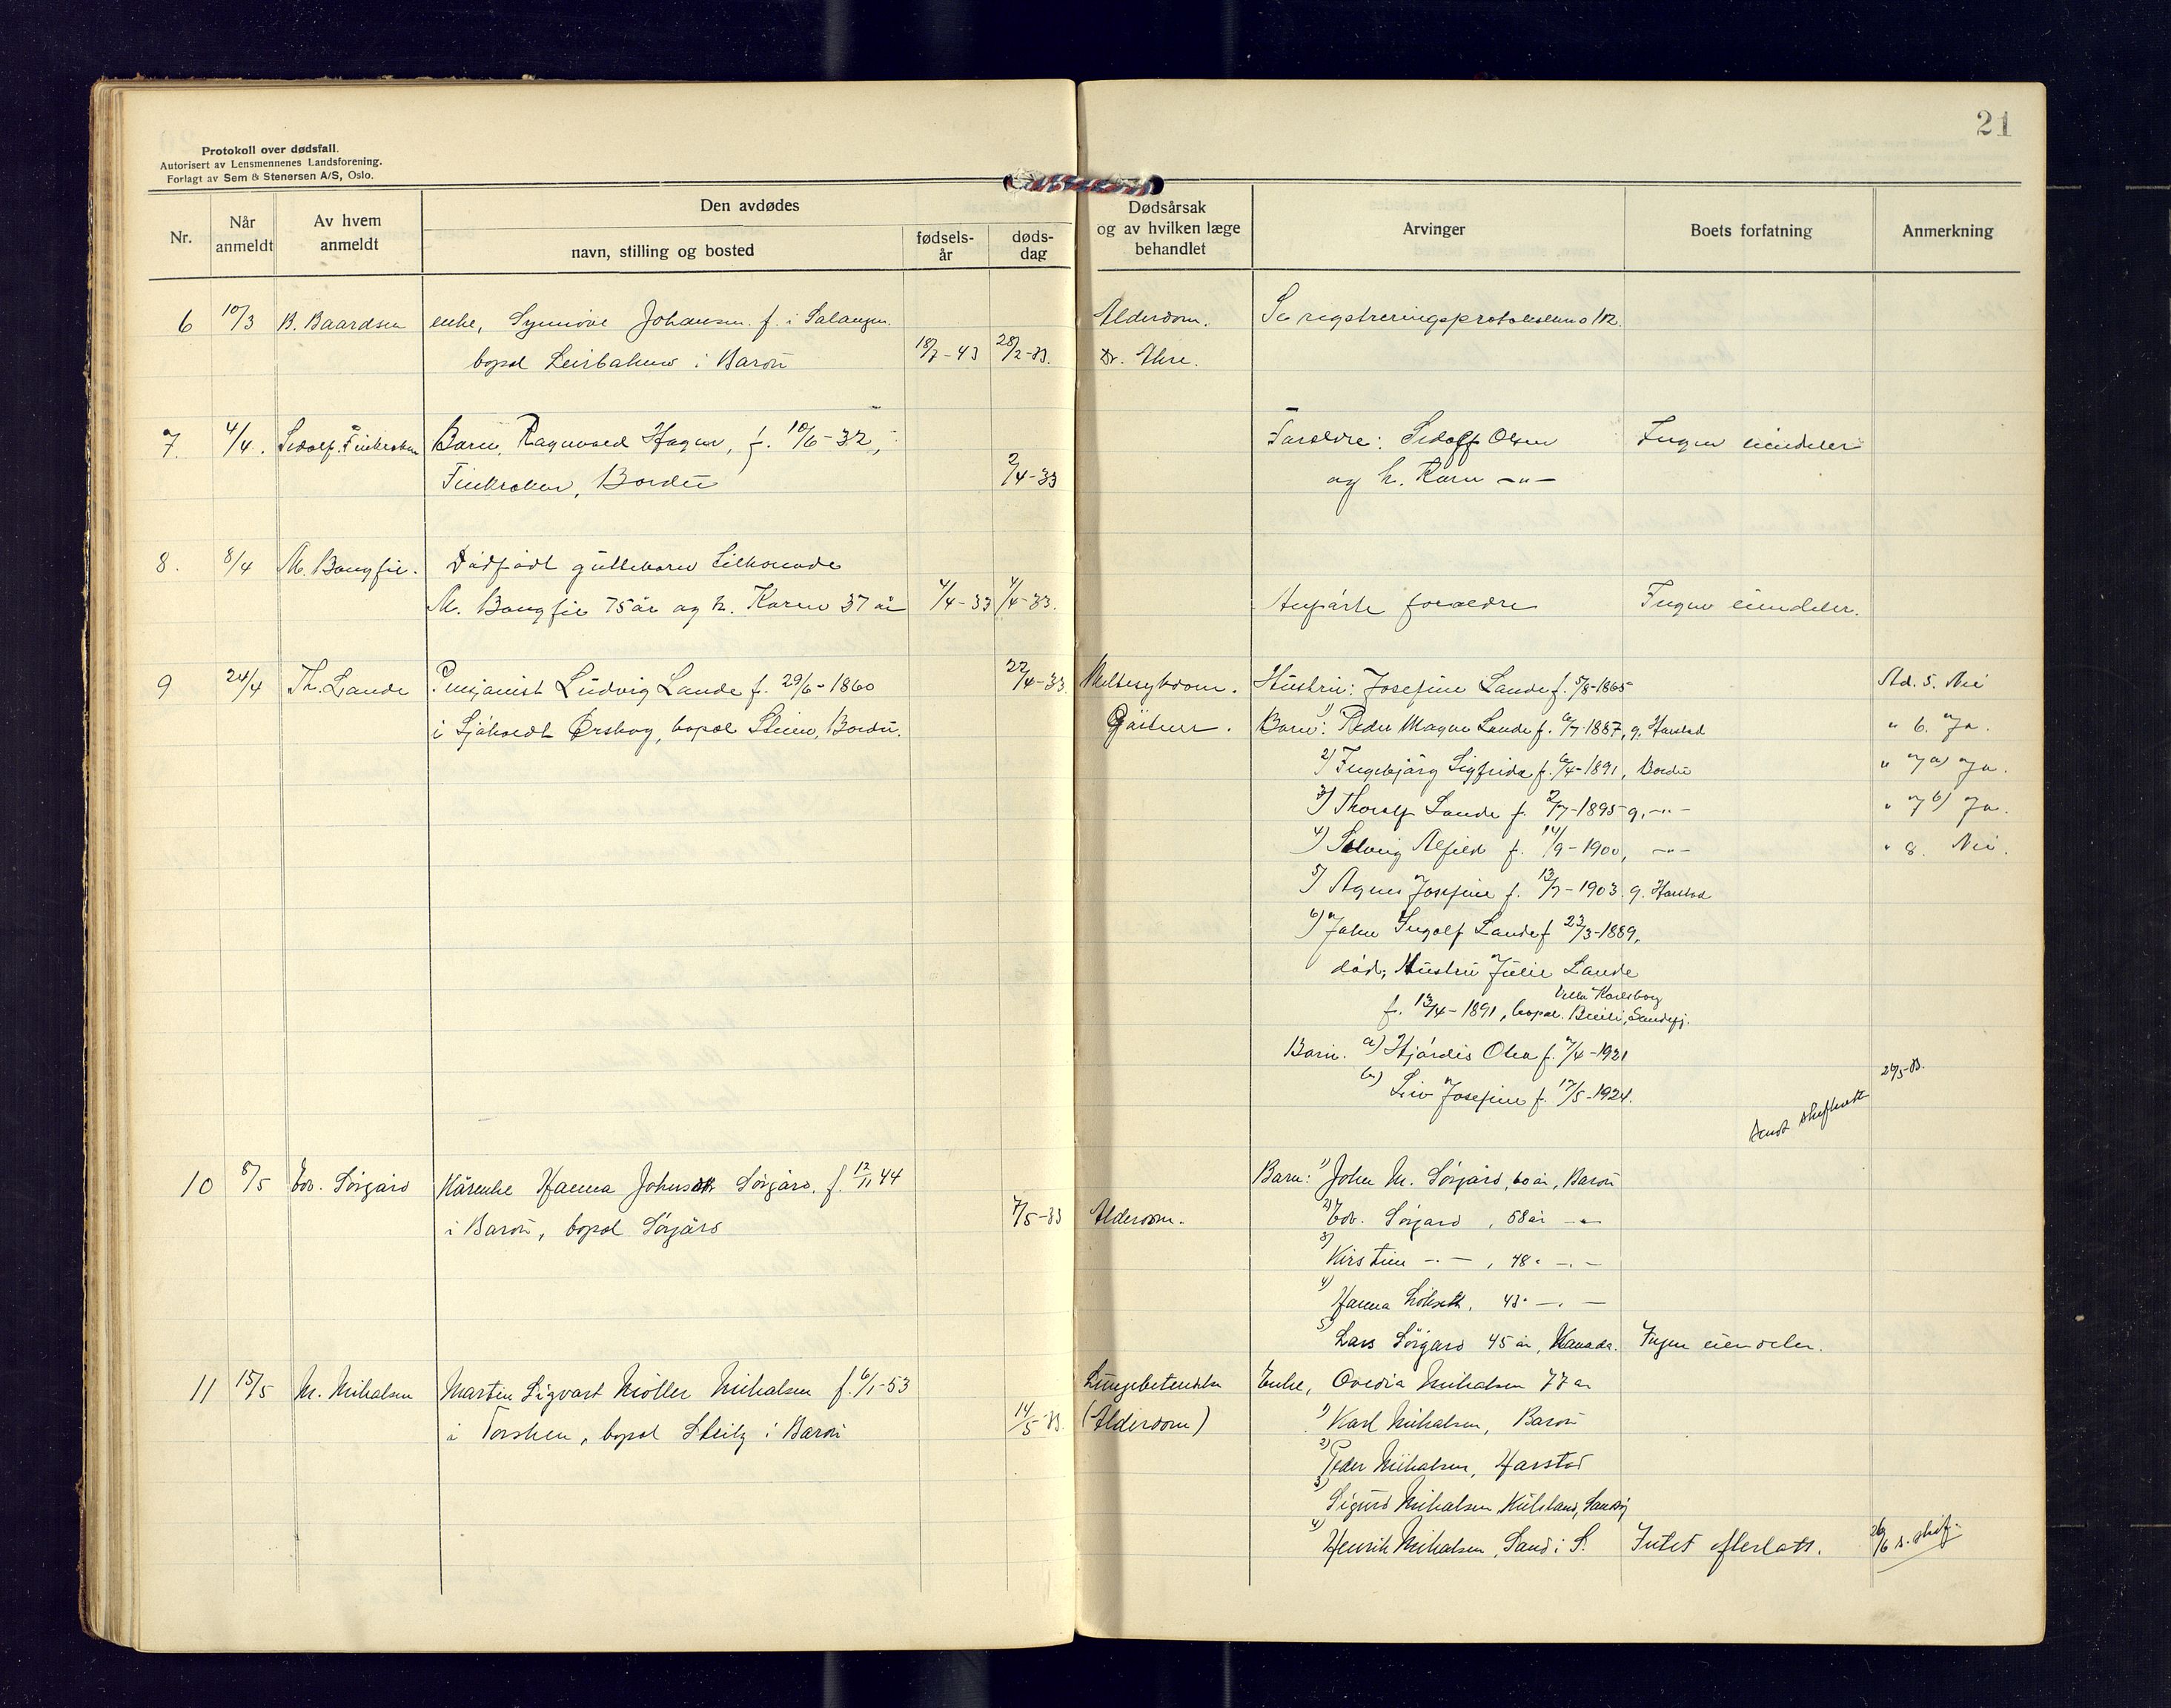 21
Protokoll over dødsfall.
Autorisert av Lensmennenes Landsforening.
Forlagt av Sem & Stenersen A/S, Oslo.
Nr.
Når anmeldt
Av hvem anmeldt
Den avdødes
navn, stilling og bosted
fødsels-år
døds-dag
Dødsårsak og av hvilken læge behandlet
Arvinger
Boets forfatning
Anmerkning
6 10/3 B. Baardsen enke, Synnöve Johansen f. i Salangen. Alderdom. Se registreringsprotokollen
bopel i Bardu 18/7-43 28/2-33. Dr.
7. 4/4. Sedolf Finkroken Barn, Ragnvald Hagen, f. 10/6-32, Foreldre: Sedolf Olsen Ingen eiendeler
Finkroken, Bardu 2/4-33 og h. Karen -"-
8. 8/4 M. Bangfil. Dødfødt guttebarn tilhörende
M. Bangfil 75 år og h. Karen 37 år 4/4-33 4/4-33. foreldre Ingen eiendeler.
9 24/4 Th. Lande Pensjonist Ludvig Lande f. 29/6-1860 22/4-33 Hustru: Josefine Lande f. 5/8-1865 Ad. 5. Nei
i Sjøholt Ørskog, bopel Steien, Bardu. Barn: 1) Peder Magnus Lande f. 6/7-1887, g. Harstad " 6. Ja.
2) Ingebjørg Sigfrida f. 6/4-1891, Bardu " 7 a) Ja.
3) Thorolf Lande f. 2/7-1895 g, -"- " 7 b) Ja.
4) Solveig Alfild f. 14/9-1900, -"- " 8. Nei.
5) Agnes Josefine f. 13/7-1903. g. Harstad
6) John Ingolf Lande f 23/3-1889,
död; Hustru Julie Lande
Villa Karlsborg
f. 13/4-1891, bopel. Sandefj.
Barn. a) Hjördis Olea f. 7/4-1921
b) Liv Josefine f. 17/5-1924.
26/5-33.
Sendt skifterett
10 8/5 Edv. Sörgård Kårenke Hanna Johnsdtr Sörgård. f. 12/11 44 Barn: 1) John M. Sörgård, 60 år, Bardu
i Bardu, bopel Sörgård 7/5-33 Alderdom. 2) Edv. Sörgård, 58 år -"-
3) Kirstine -"-, 48 " -"-
4) Hanna 43 " -"-
5) Lars Sörgård 45 år, Kanada. Ingen eiendeler.
11 15/5 M. Mikalsen Martin Sigvart Möller Mikalsen f. 6/1-53 Lungebetennelse Enke, Ovedia Mikalsen 77 år
i Torsken, bopel i Bardu 14/5-33. (Alderdom) 1) Karl Mikalsen, Bardu
2) Peder Mikalsen, Harstad
3) Sigurd Mikalsen,
4) Henrik Mikalsen, Sand i S. Intet efterlatt. 26/6 s. skif.